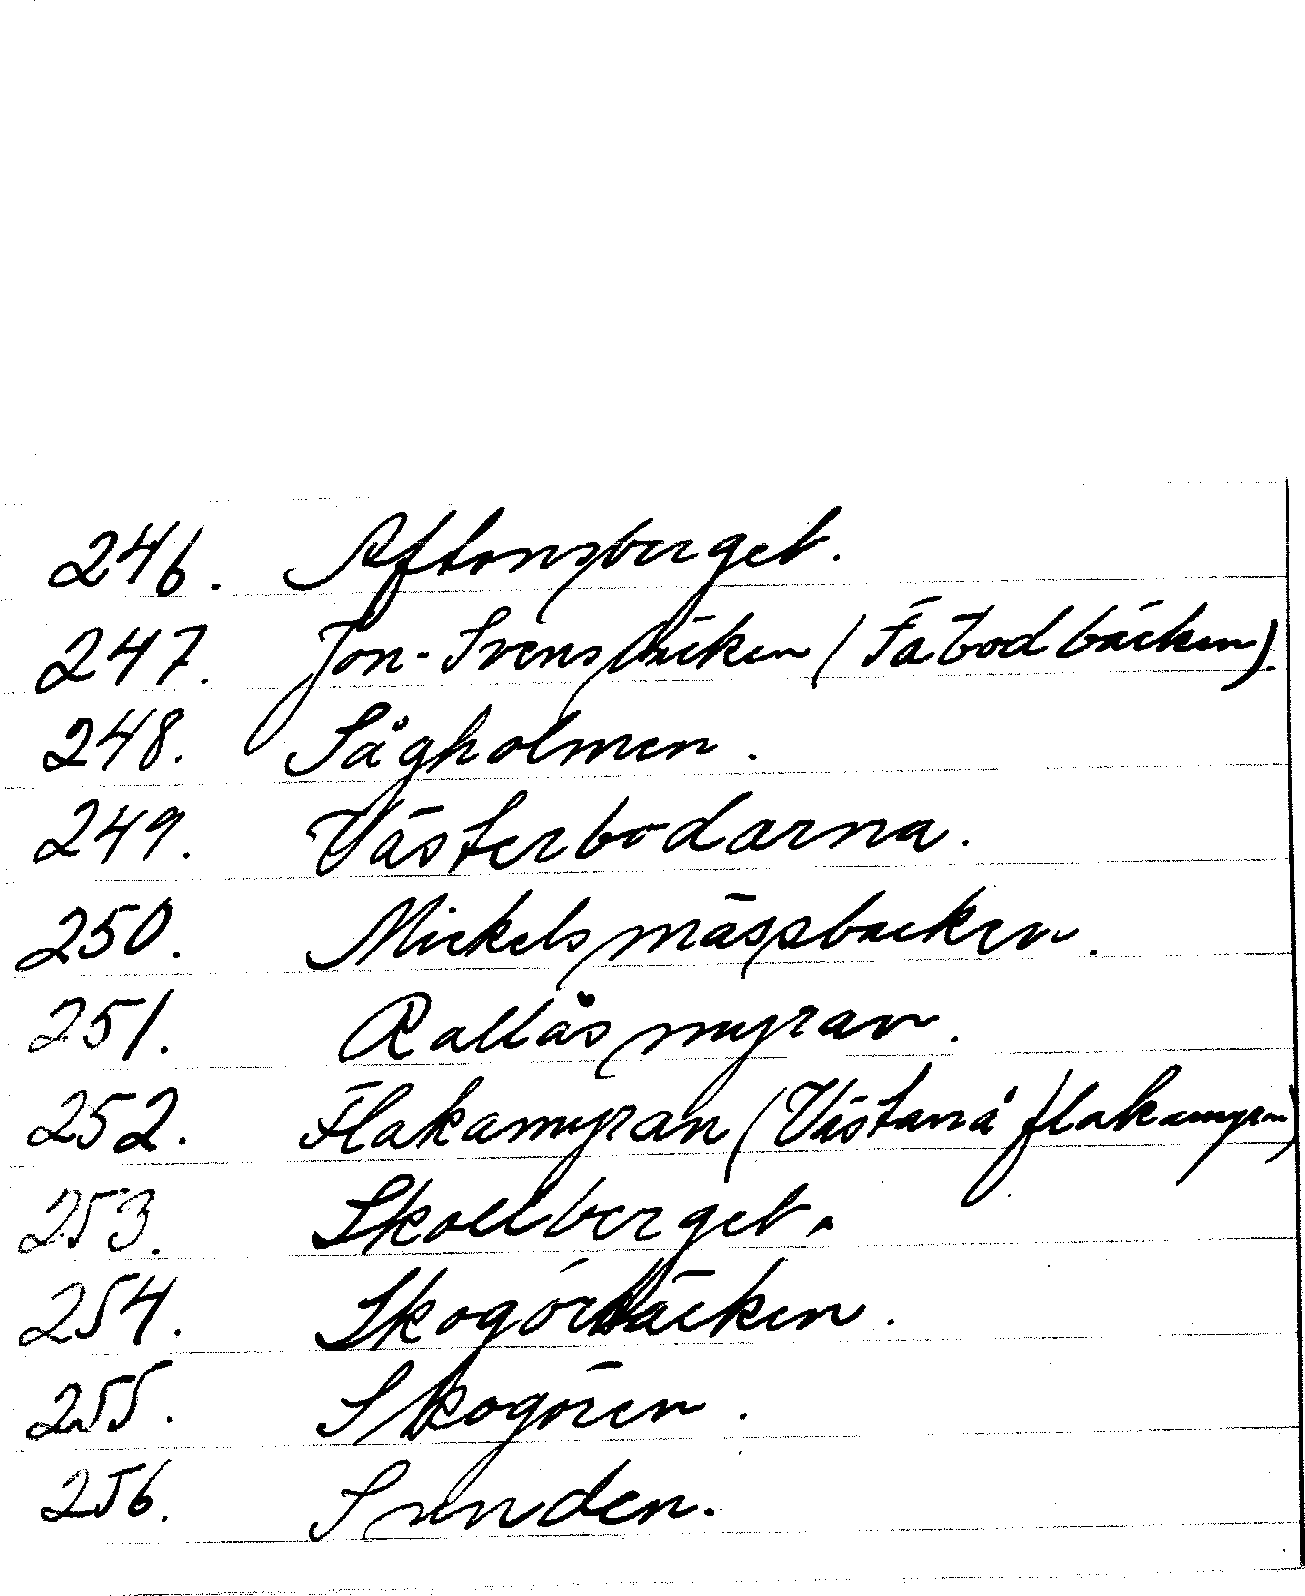 246. Aftonsberget.
247. Jon-Svensbäcken (Fäbodbäcken).
248. Sågholmen.
249. Västerbodarna.
250. Mickelsmässbacken.
251. Rallåsmyran.
252. Flakamyran (Västanå flakamyran)
253. Skallberget.
254. Skogörbäcken.
255. Skogören.
256. Sunden.